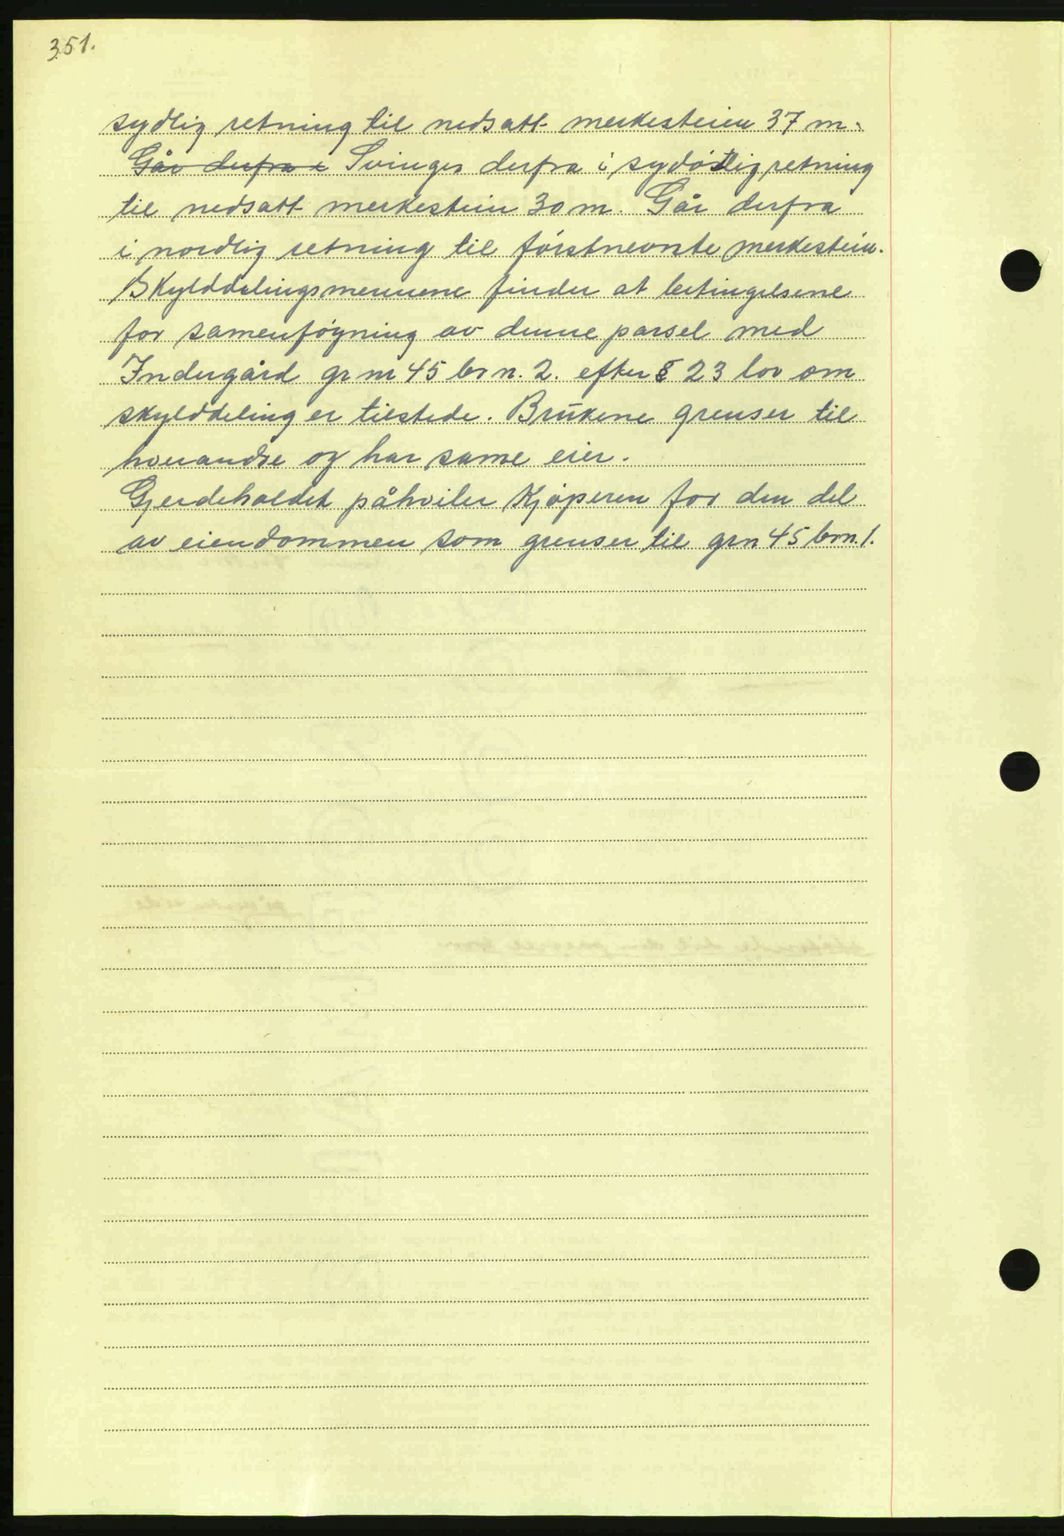 351.
sydlig retning til nedsatt merkesteien 37 m.
Går derfra i Svinges derfra i sydöstlig retning
til nedsatt merkestein 30 m. Går derfra
i nordlig retning til förstnevnte merkestein.
Skylddelingsmennene finder at betingelsene
for samenföyning av denne parsel med
Indergård gr nr 45 br n. 2. efter § 23 lov om
skylddeling er tilstede. Brükene grenser til
hverandre og har same eier.
Gjerdeholdet påhviler Kjöperen for den del
av eiendommen som grenser til grn 45 brn. 1.